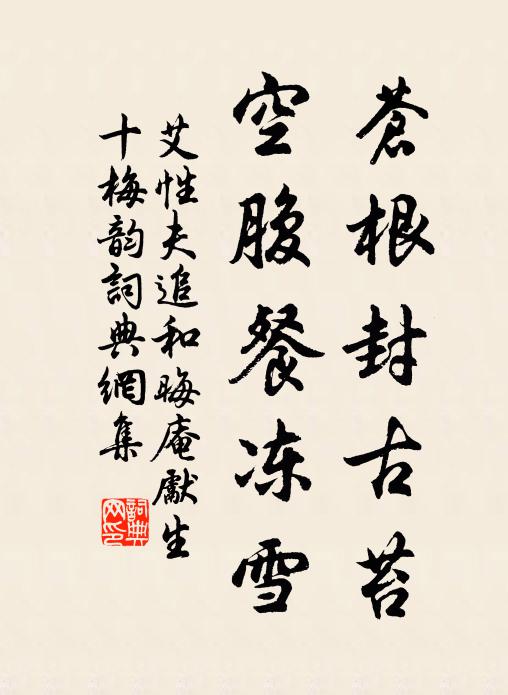 蒼根封古苔
空腹餐冻雪
艾性夫追和晦庵獻生
十梅韵詞典網集
詞典
网印